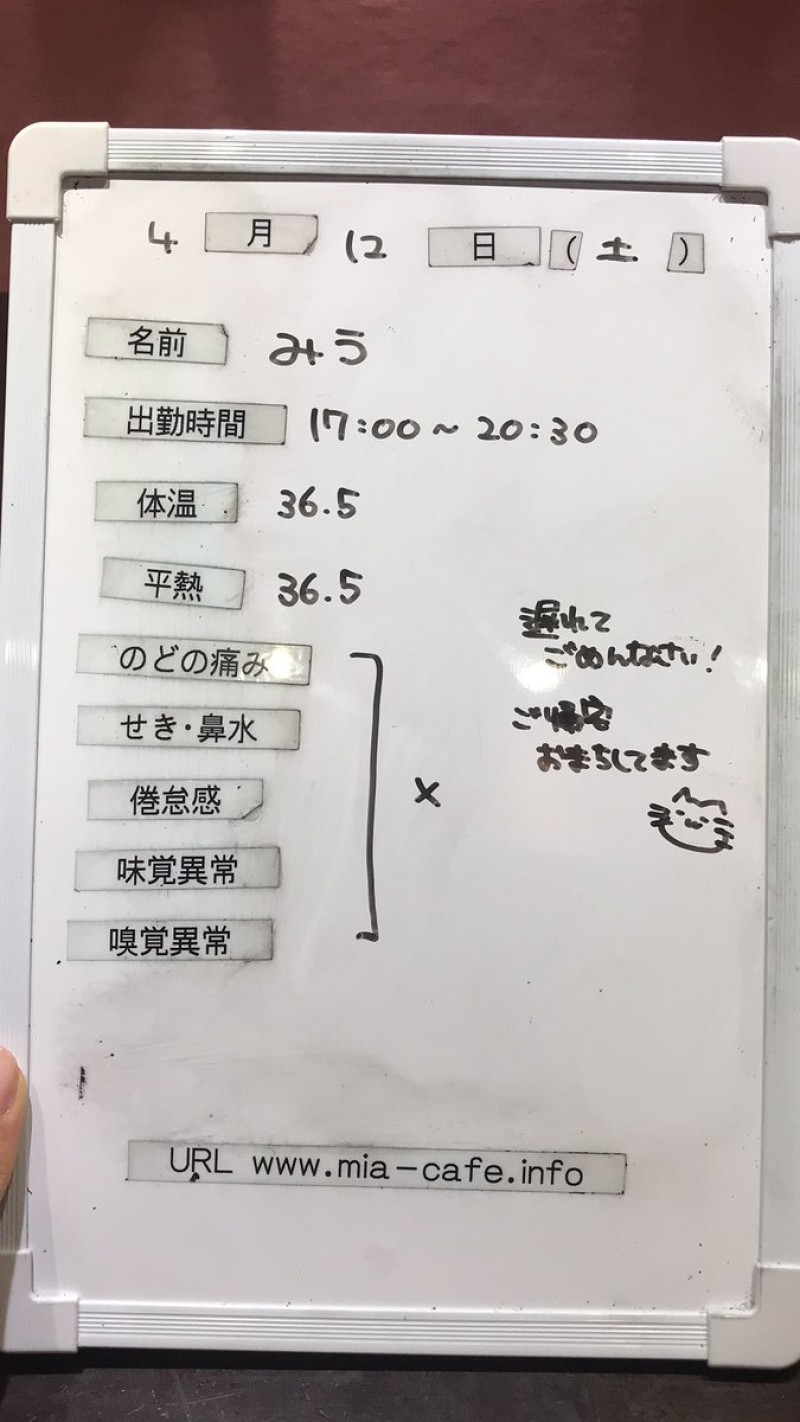 4月12日(土)
名前 みう
出勤時間 17:00~20:30
体温 36.5
平熱 36.5
のどの痛み
せき・鼻水
倦怠感
味覚異常
嗅覚異常
×
遅れて
ごめんなさい!
ご帰宅
おまちしてます
URL www.mia-cafe.info